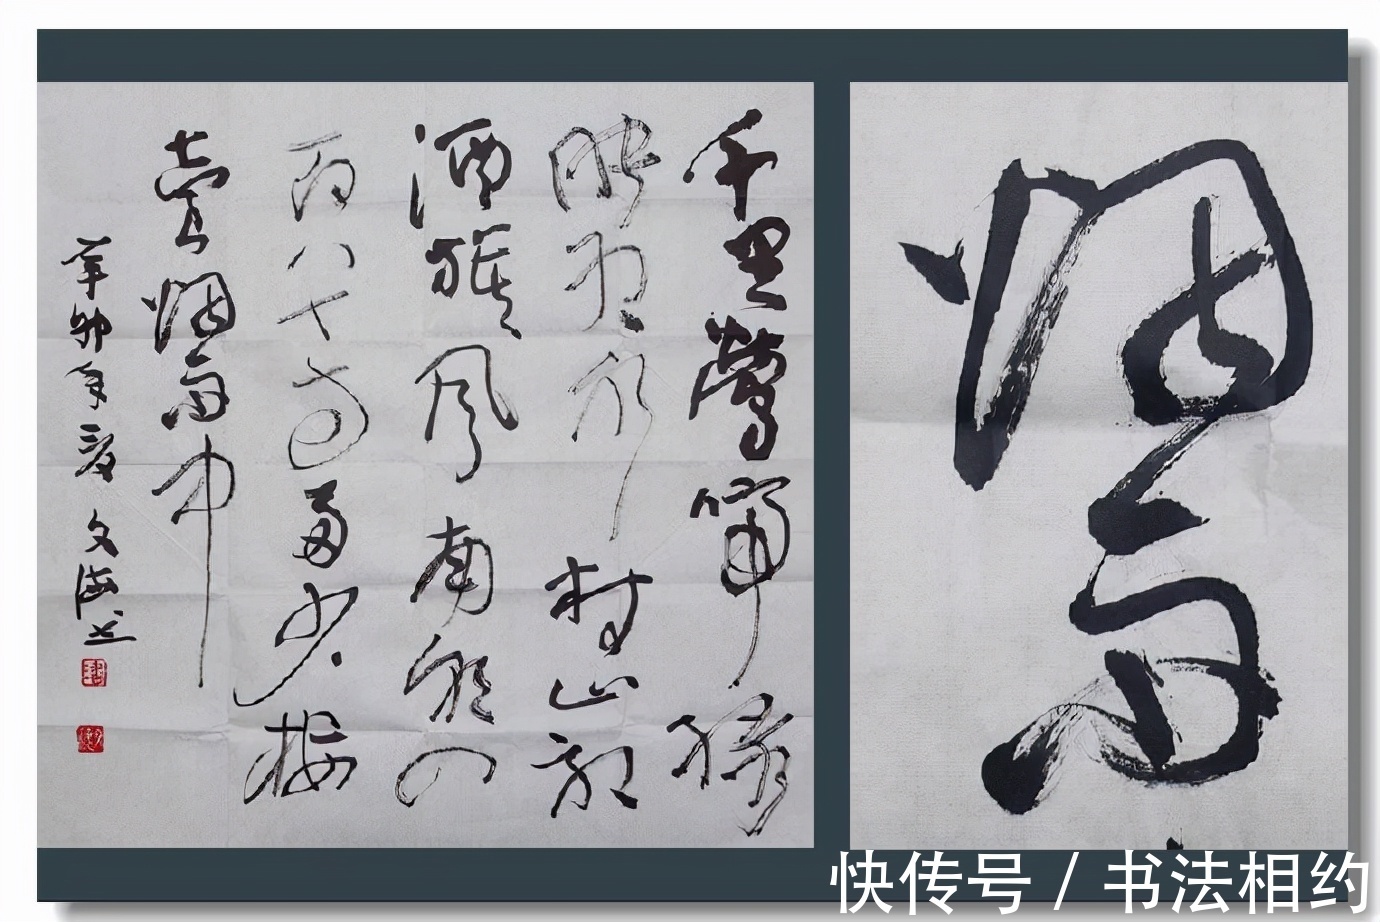 千里鶯啼绿
映红水村山郭
酒旗风南朝四
百八十寺多少楼
臺烟雨中
辛卯年夏 文海书
烟雨
快传号 / 书法相约